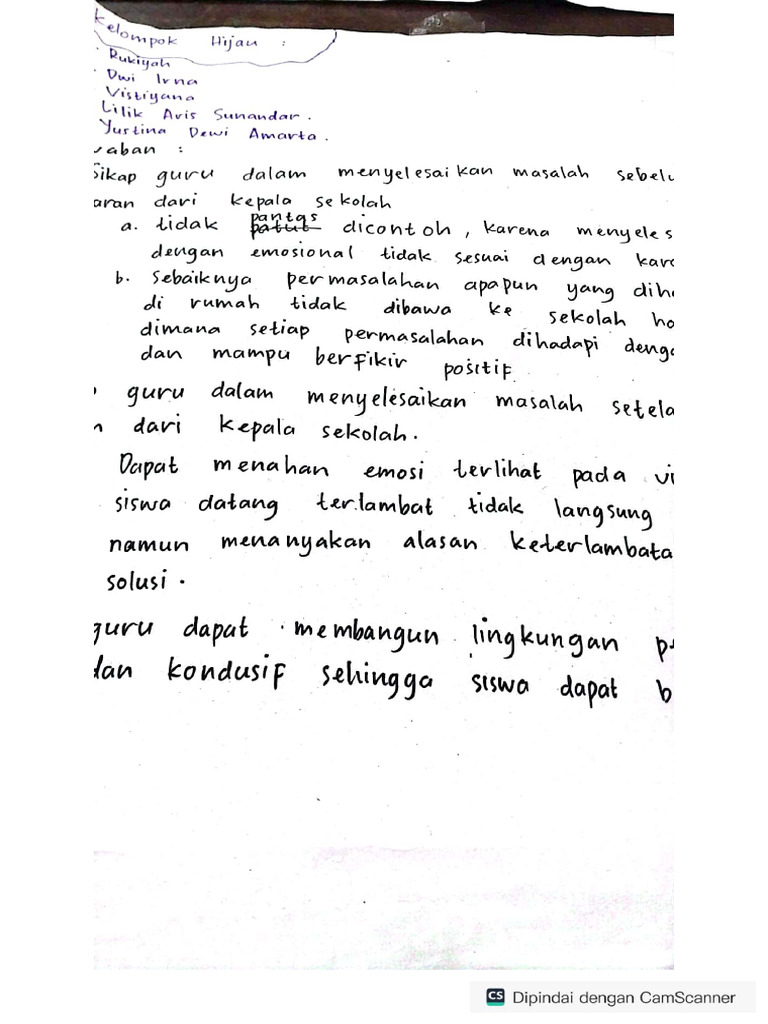 Kelompok Hijau :
Rukiyah
Dwi Irna
Vistiyana
Lilik Aris Sunandar.
Yustina Dewi Amarta.
waban :
Sikap guru dalam menyelesaikan masalah sebelu
aran dari kepala sekolah
a. tidak pantas patut dicontoh, karena menyeles
dengan emosional tidak sesuai dengan kara
b. Sebaiknya permasalahan apapun yang diha
di rumah tidak dibawa ke sekolah ha
dimana setiap permasalahan dihadapi denga
dan mampu berfikir positif
guru dalam menyelesaikan masalah setela
n dari kepala sekolah.
Dapat menahan emosi terlihat pada vi
siswa datang terlambat tidak langsung
namun menanyakan alasan keterlambata
solusi.
guru dapat membangun lingkungan p
dan kondusif sehingga siswa dapat b
CS Dipindai dengan CamScanner